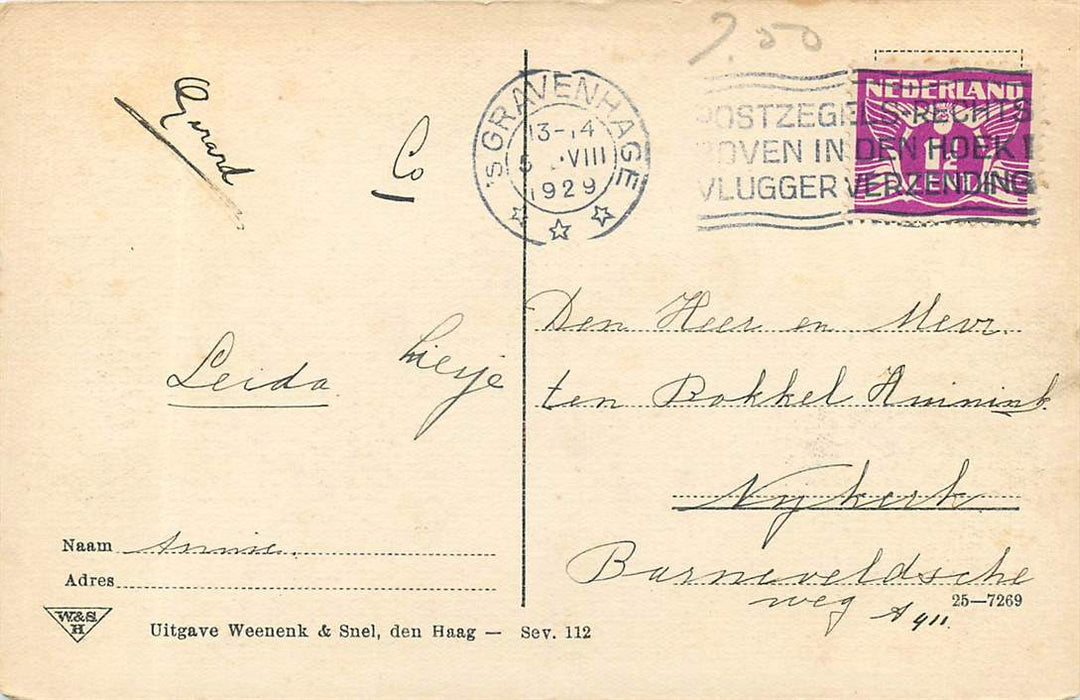 7.50
'S GRAVENHAGE
13-14
5 VIII
1929
POSTZEGELS RECHTS
BOVEN IN DEN HOEK!
VLUGGER VERZENDING
NEDERLAND
1½
CENT
Gerard
Co
Leida
Liesje
Naam Annie.
Adres
W&S
H
Uitgave Weenenk & Snel, den Haag — Sev. 112
Den Heer en Mevr.
ten Bokkel Huinink
Nijkerk
Barneveldsche
weg A 911.
25—7269